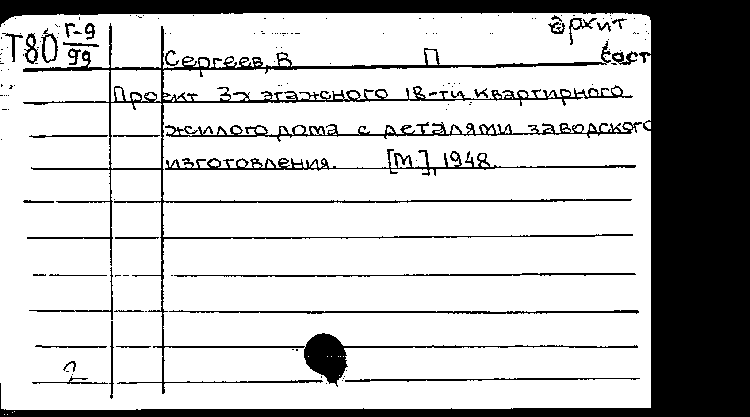 архит
Т80 г-9/99
Сергеев, В П сост
Проект 3-х этажного 18-ти квартирного
жилого дома с деталями заводского
изготовления. [М.], 1948.
2